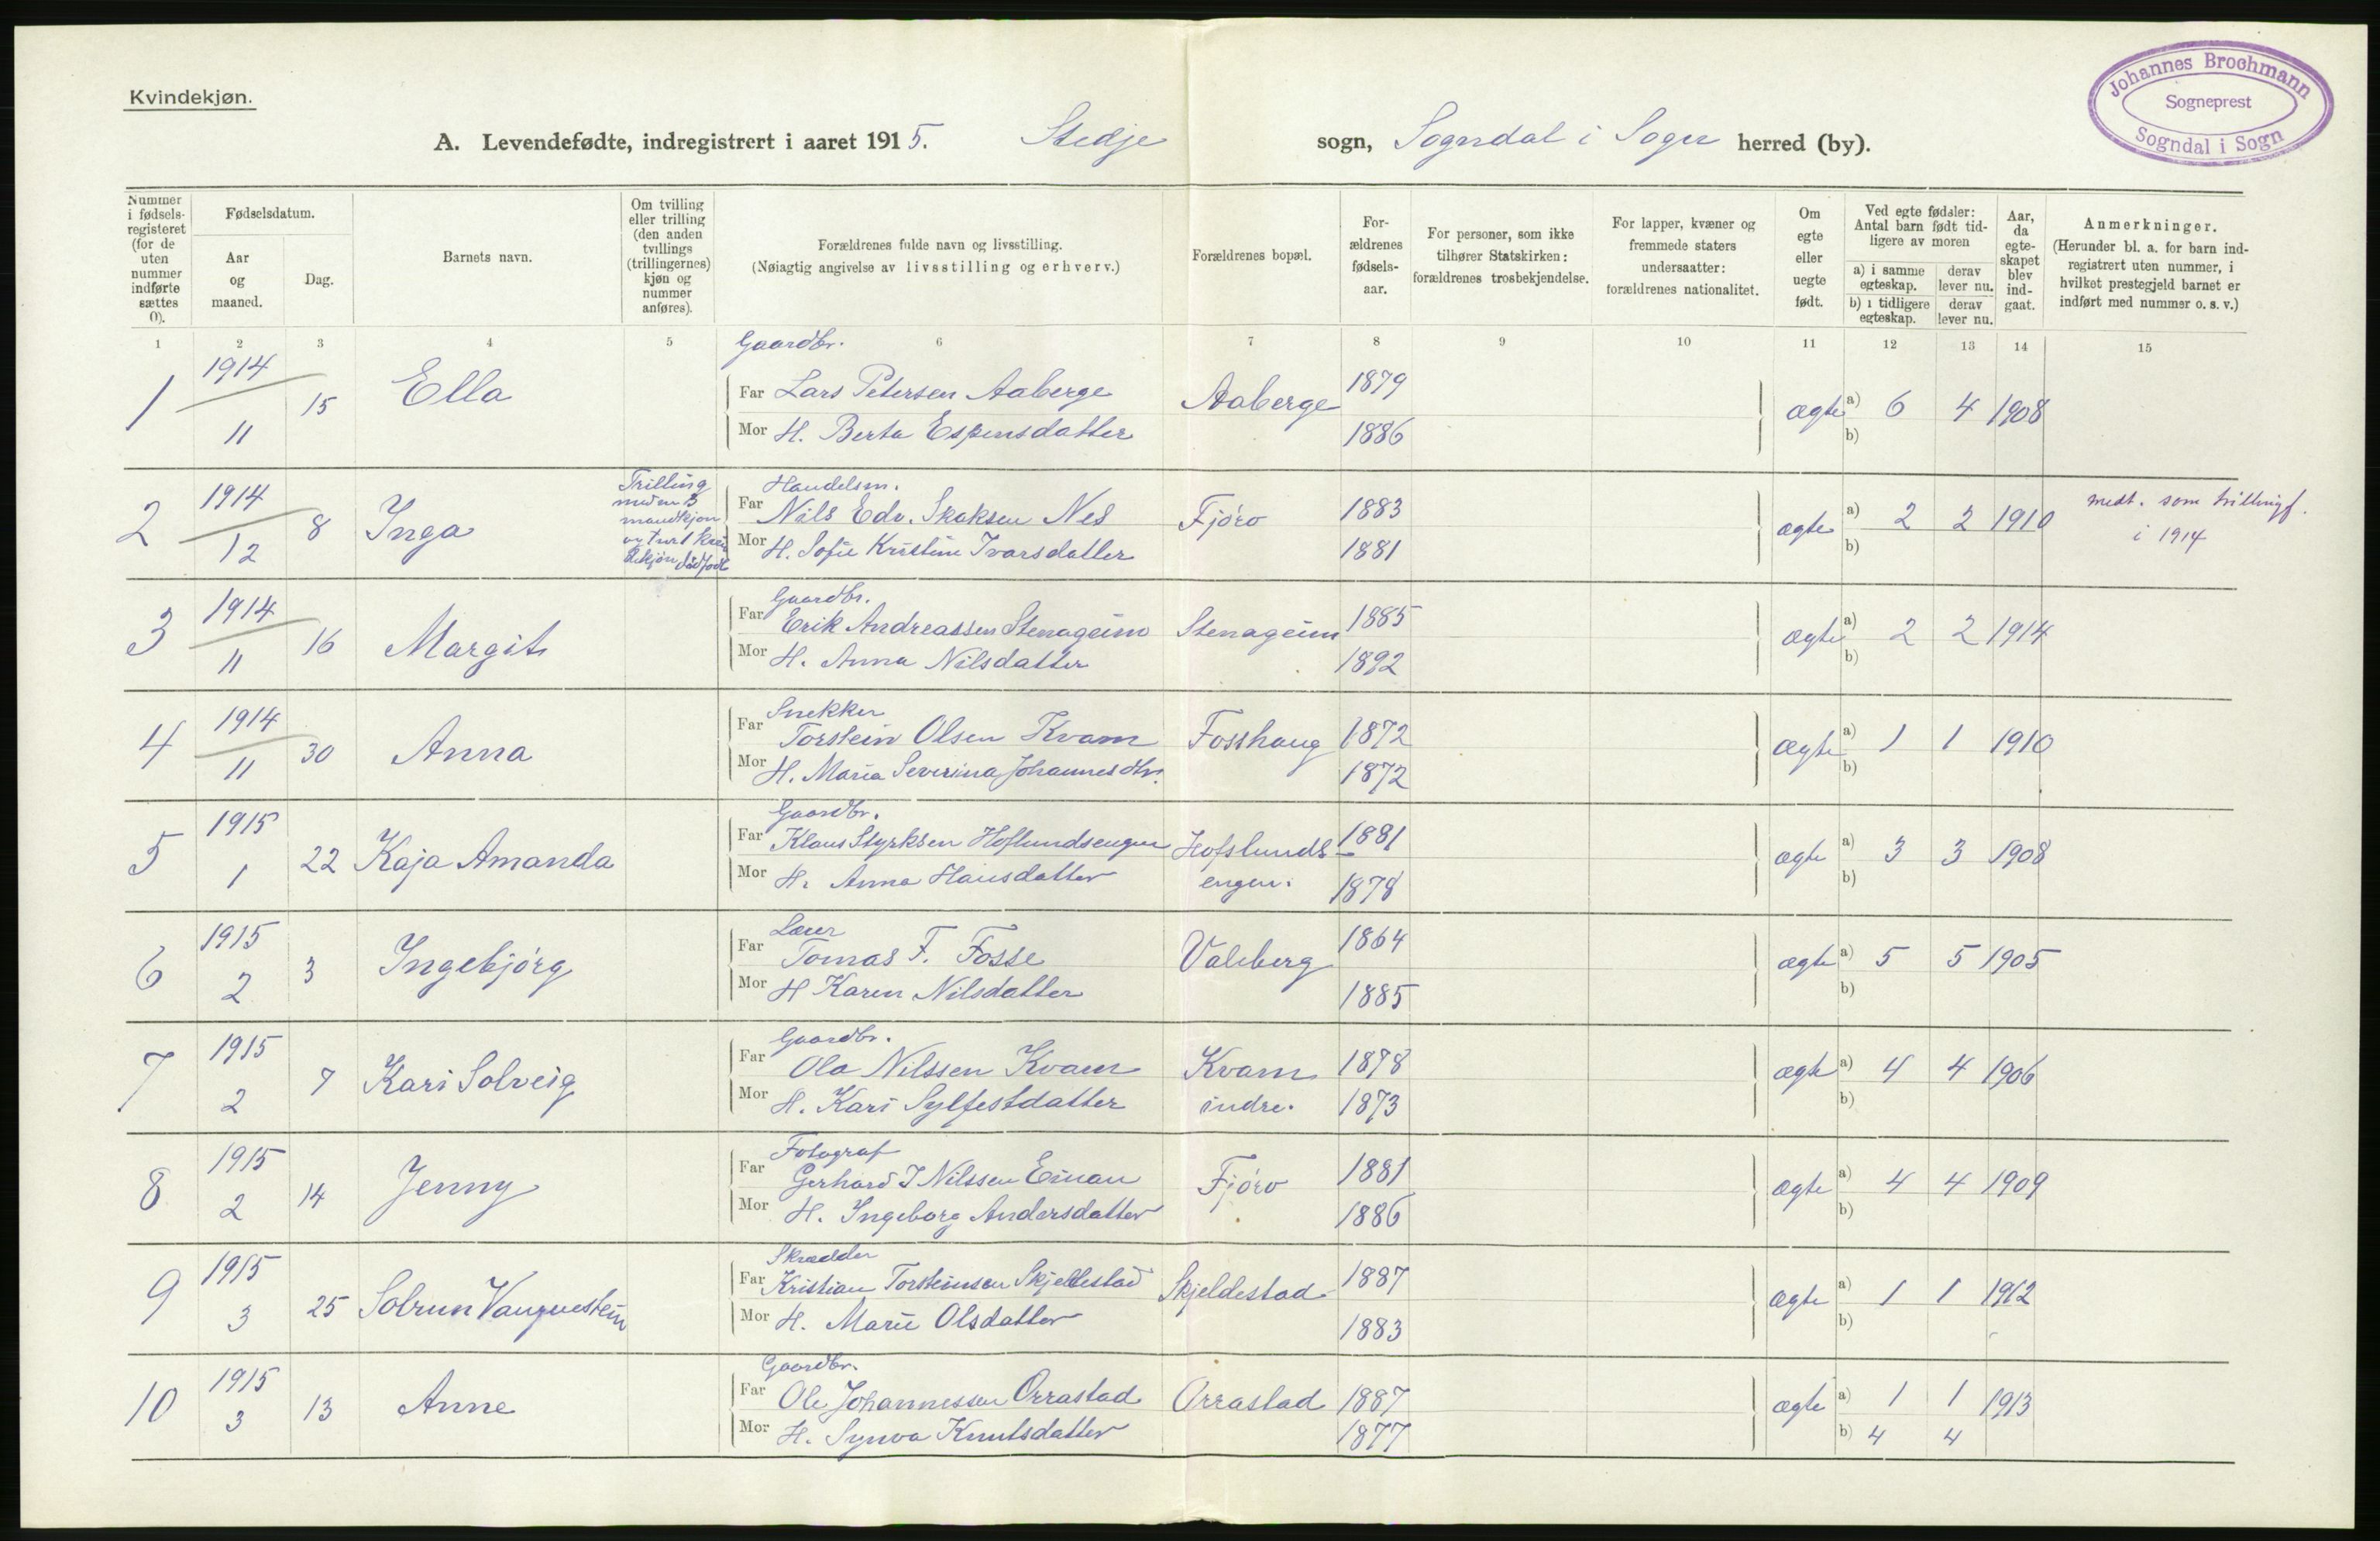 Kvindekjøn.
Johannes Brochmann
Sogneprest
Sogndal i Sogn
A. Levendefødte, indregistrert i aaret 1915. Stedje sogn, Sogndal i Sogn herred (by).
Nummer i fødsels-registeret (for de uten nummer indførte sættes 0).
Fødselsdatum.
Aar og maaned.
Dag.
Barnets navn.
Om tvilling eller trilling (den anden tvillings (trillingernes) kjøn og nummer anføres).
Forældrenes fulde navn og livsstilling.
(Nøiagtig angivelse av livsstilling og erhverv.)
Forældrenes bopæl.
For-ældrenes fødsels-aar.
For personer, som ikke tilhører Statskirken: forældrenes trosbekjendelse.
For lapper, kvæner og fremmede staters undersaatter: forældrenes nationalitet.
Om egte eller uegte født.
Ved egte fødsler: Antal barn født tid-ligere av moren
a) i samme egteskap.
derav lever nu.
b) i tidligere egteskap.
derav lever nu.
Aar, da egte-skapet blev ind-gaat.
Anmerkninger.
(Herunder bl. a. for barn ind-registrert uten nummer, i hvilket prestegjeld barnet er indført med nummer o. s. v.)
1 2 3 4 5 6 7 8 9 10 11 12 13 14 15
Gaardbr.
1 1914 11 15 Ella Far Lars Petersen Aaberge Aaberge 1879 ægte a) 6 4 1908
Mor H. Berta Espensdatter 1886 b)
Trilling
mandkjøn
Handelsm.
2 1914 12 8 Inga Far Nils Edv. Isaksen Nes Fjøro 1883 ægte a) 2 2 1910
Mor H. Sofie Kristine Ivarsdatter 1881 b)
medt. som trillingf.
i 1914
Gaardbr.
3 1914 11 16 Margit Far Erik Andreassen Stenageim Stenageim 1885 ægte a) 2 2 1914
Mor H. Anna Nilsdatter 1892 b)
Snekker
4 1914 11 30 Anna Far Torstein Olsen Kvam Fosshaug 1872 ægte a) 1 1 1910
Mor H. Maria Severina Johannesdtr. 1872 b)
Gaardbr.
5 1915 1 22 Kaja Amanda Far Klaus Styrksen Hofslundsengen Hofslunds- 1881 ægte a) 3 3 1908
Mor H. Anna Hansdatter engen. 1878 b)
Lærer
6 1915 2 3 Ingebjørg Far Tomas F. Fosse Valeberg 1864 ægte a) 5 5 1905
Mor H Karen Nilsdatter 1885 b)
Gaardbr.
7 1915 2 7 Kari Solveig Far Ola Nilssen Kvam Kvam 1878 ægte a) 4 4 1906
Mor H. Kari Sylfestdatter indre. 1873 b)
Fotograf
8 1915 2 14 Jenny Far Gerhard I Nilssen Fjøro 1881 ægte a) 4 4 1909
Mor H. Ingeborg Andersdatter 1886 b)
Skrædder
9 1915 3 25 Solrun Vangnestein Far Kristian Torsteinsen Skjeldestad Skjeldestad 1887 ægte a) 1 1 1912
Mor H. Marie Olsdatter 1883 b)
Gaardbr.
10 1915 3 13 Anne Far Ole Johannessen Orrastad Orrastad 1887 ægte a) 1 1 1913
Mor H. Synva Knutsdatter 1877 b) 4 4